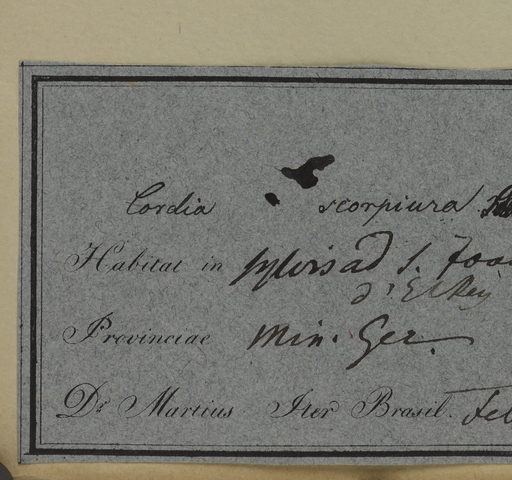 Cordia scorpiura
Habitat in ad S. Joa
d'El Rey
Provinciae Min. Ger.
Dr. Martius Iter Brasil. Feb